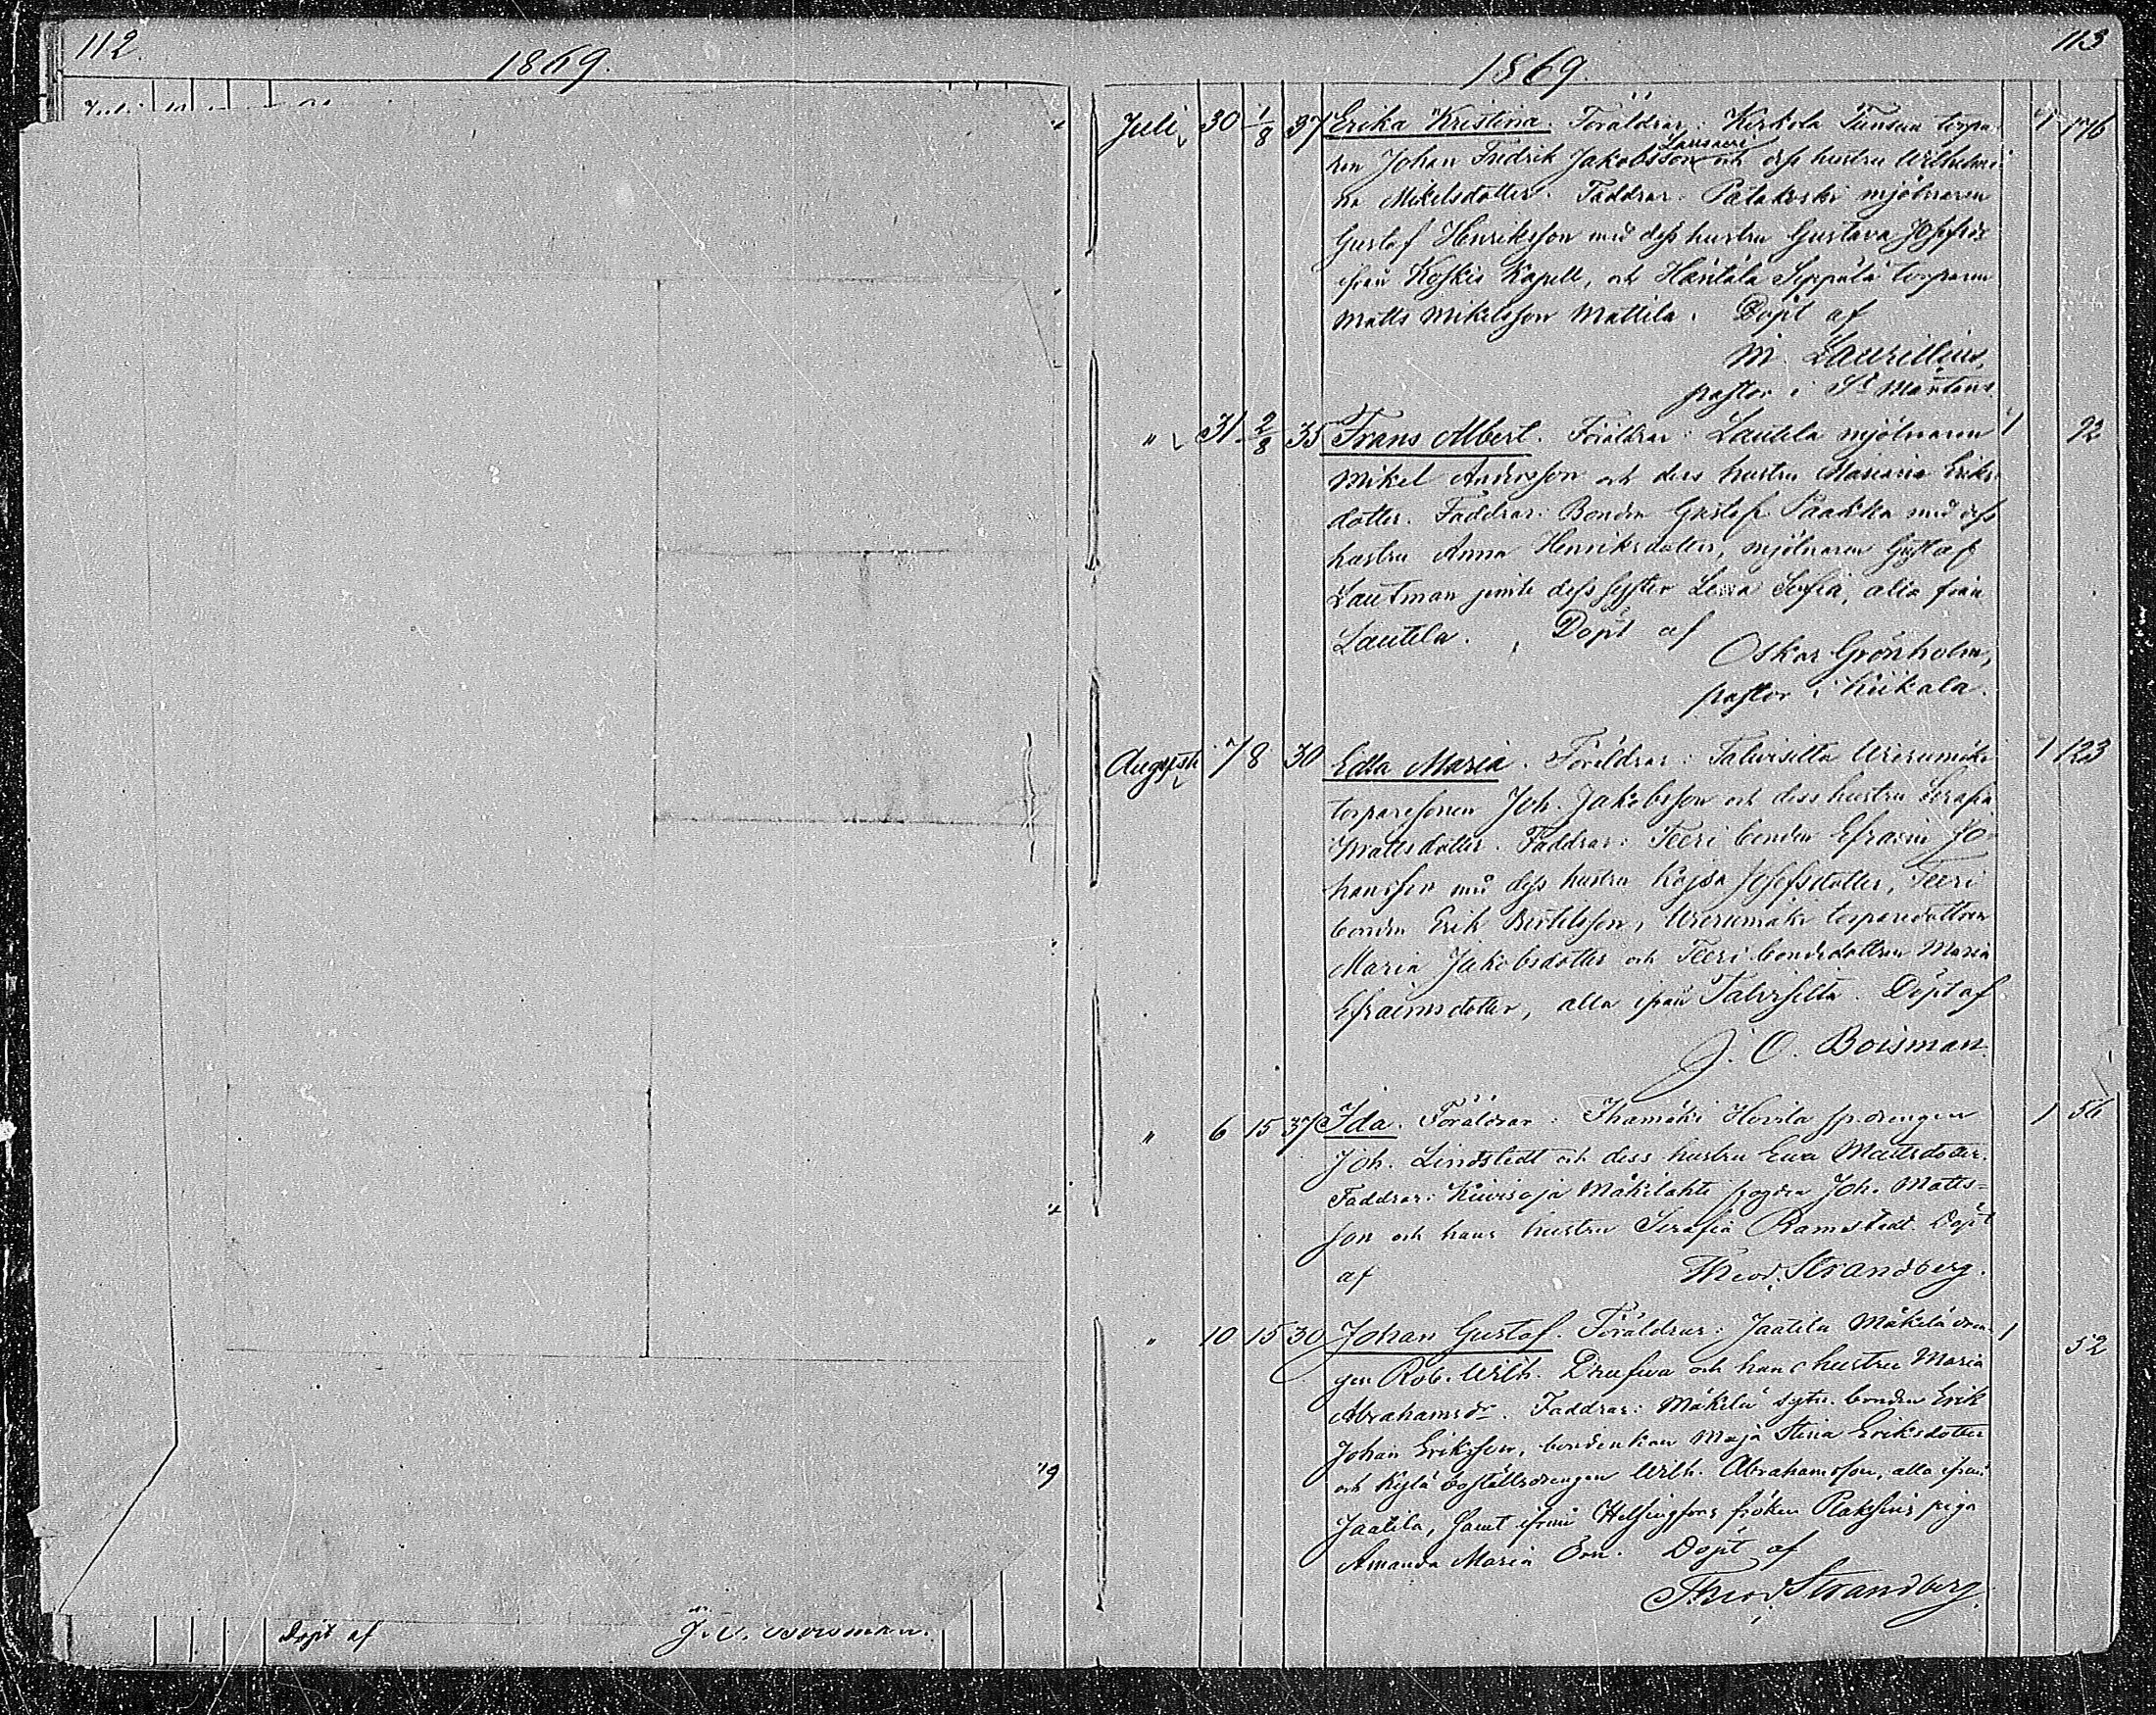 112.
1869.
Dopt af J. O. Boisman.
113
1869.
Juli 30 1/8 37 Erika Kristina. Föräldrar: Kirkola torpa- 1 176
ren Johan Fredrik Jakobsson och dess hustru Wilhelmi
na Mikelsdotter. Faddrar: Palakoski mjölnaren
Gustaf Henriksson med dess hustru Gustava Josefsd:
ifrån Koskis Kapell, och Häntälä Seppälä torparen
Matts Mikelsson Mattila. Döpt af
M. Laurillius,
pastor i St Mårtens.
" 31 2/8 35 Frans Albert. Föräldrar: Lautela mjölnaren 1 92
Mikel Andersson och dess hustru Mariana Eriks-
dotter. Faddrar: Bonden Gustaf Paakka med dess
hustru Anna Henriksdotter, mjölnaren Gustaf
Lautman jemte dess syster Lena Sofia, alla från
Lautela. Döpt af
Oskar Grönholm,
pastor i Kiikala.
Augusti 7 8 30 Edla Maria. Föräldrar: Talvisilta 1 123
torparesonen Joh. Jakobsson och dess hustru Serafia
Mattsdotter. Faddrar: Teeri bonden Efraim Jo-
hansson med dess hustru Kajsa Josefsdotter, Teeri
bonden Erik Bertilsson, torparedottren
Maria Jakobsdotter och Teeri bondedottren Maria
Efraimsdotter, alla ifrån Talvisilta. Döpt af
J. O. Boisman.
" 6 15 37 Ida. Föräldrar: Ihamäki drengen 1 56
Joh. Lindstedt och dess hustru Eva Mattsdotter.
Faddrar: Kiivisoja Mäkilähti fogden Joh. Matts-
son och hans hustru Serafia Ramstedt. Döpt
af Theod. Strandberg.
" 10 15 30 Johan Gustaf. Föräldrar: Jaatila Mäkelä dren- 1 52
gen Rob. Wilh. och hans hustru Maria
Abrahamsdr. Faddrar: Mäkelä sytn. bonden Erik
Johan Eriksson, bondenkan Maja Stina Eriksdotter
och drengen Wilh. Abrahamsson, alla ifrån
Jaatila, samt ifrån Helsingfors fröken piga
Amanda Maria Örn. Döpt af
Theod. Strandberg.